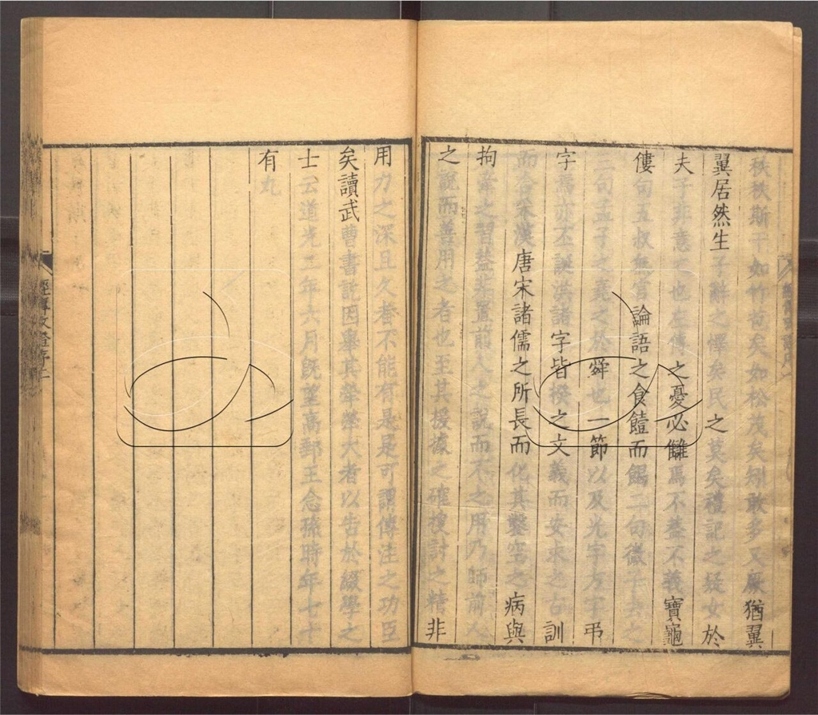 秩秩斯干如竹苞矣如松茂矣矧敢多又厥猶翼
翼居然生子辭之懌矣民之莫矣禮記之疑女於
夫子非意之也左傳之憂必讎焉不蓋不義寶龜
僂句 叔無言論語之食饐而餲一句微子去之
三句孟子之堯之於舜也一節以及光字万字弔
字 亦不 諸字皆揆之文義而安求之古訓
而合 漢唐宋諸儒之所長而化其鑿空之病與
拘牽之習蓋非置前人之說而不之用乃師前人
之說而善用之者也至其援據之確搜討之精非
用力之深且久者不能有是是可謂傳注之功臣
矣讀武曹書訖因舉其犖犖大者以告於綴學之
士云道光二年六月旣望高郵王念孫時年七十
有九
經傳攷證序二